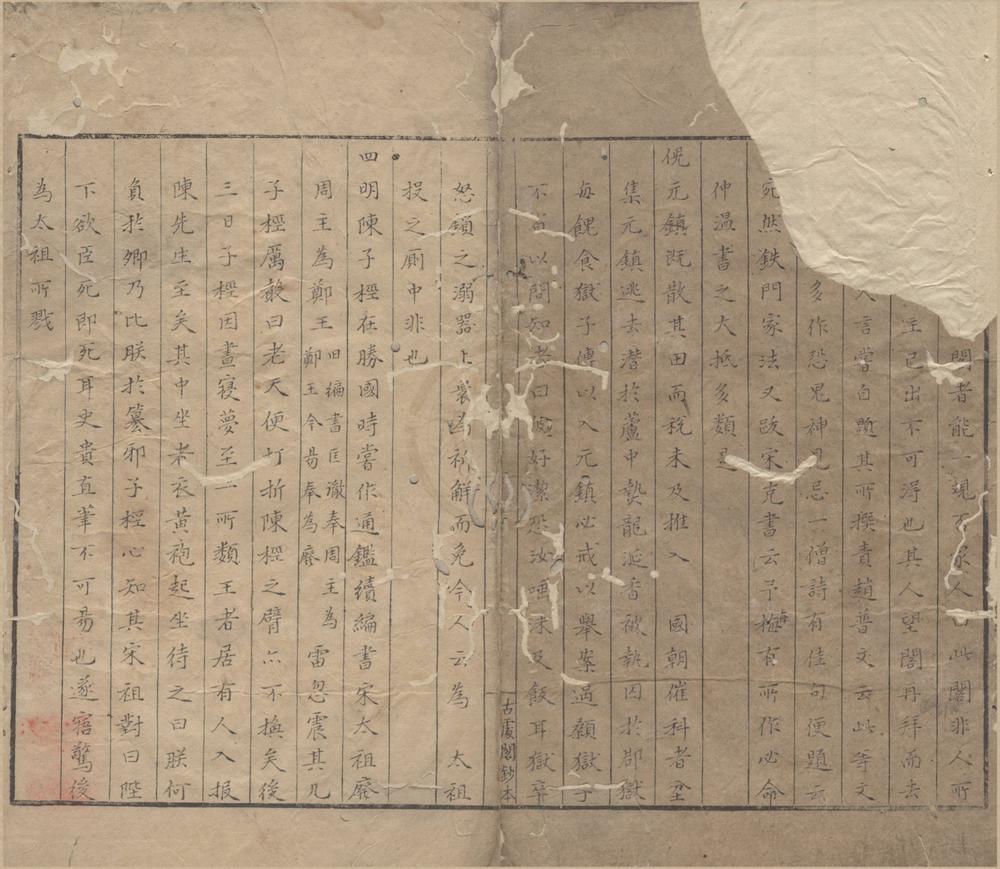 閣者能一覩否家人曰此閣非人所
主已出不可得也其人望閣再拜而去
人言嘗自題其所撰責趙普文云此等文
多作恐鬼神見忌一僧詩有佳句便題云
宛然鉄門家法又跋宋克書云予每有所作必命
仲温書之大抵多類是
倪元鎮既散其田而稅未及推入　國朝催科者坌
集元鎮逃去潛於蘆中爇龍涎香被執囚於郡獄
每餽食獄子傳以入元鎮必戒以舉案過額獄子
不省以問知者曰倪好潔恐汝唾沫及飯耳獄卒
怒鎖之溺器上眾為祈解而免今人云為　太祖
投之厠中非也
四明陳子桱在勝國時嘗作通鑑續編書宋太祖廢
周主為鄭王
旧編書匡㣲奉周主為
鄭王今昜奉為廢
雷忽震其几
子桱厲聲曰老天便打折陳桱之臂亦不換矣後
三日子桱因晝寢夢至一所類王者居有人入报
陳先生至矣其中坐者衣黃袍起坐待之曰朕何
負於卿乃比朕於篡邪子桱心知其宋祖對曰陛
下欲臣死即死耳史貴直筆不可昜也遂寤驚後
為太祖所戮
古虞閣鈔本